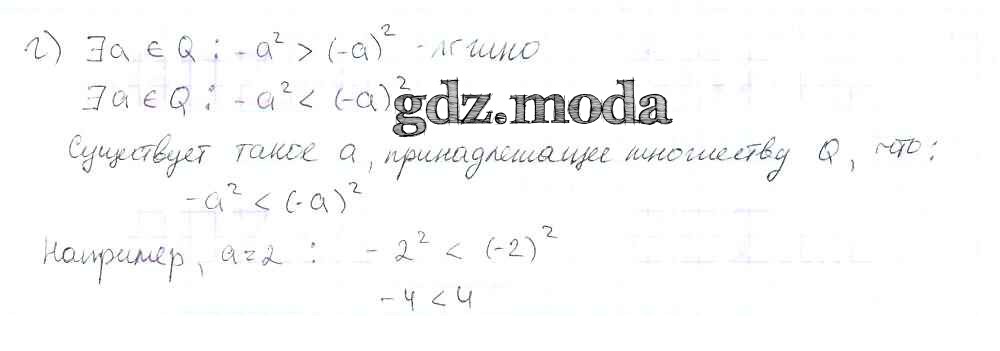 г) ∃a ∈ Q : -a² > (-a)² - лгчино
∃a ∈ Q : -a² < (-a)²
gdz.moda
Существует такое a, принадлежащее множеству Q, что:
-a² < (-a)²
Например, a=2 : -2² < (-2)²
-4 < 4